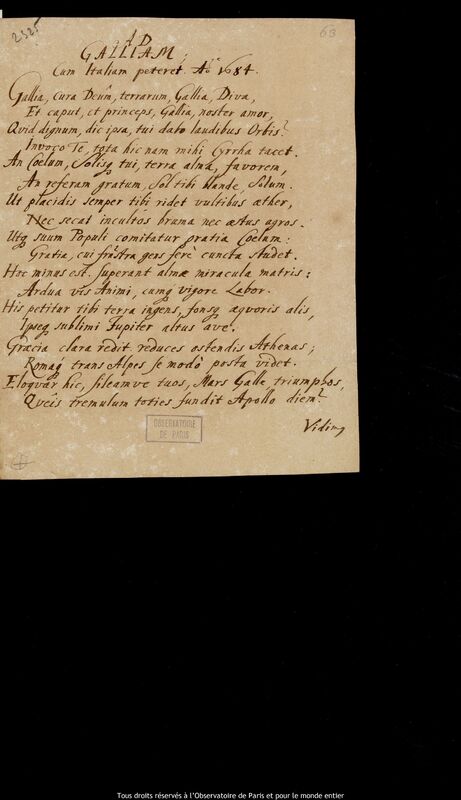 2325
63
AD
GALLIAM,
Cum Italiam peteret. Aº 1684.
Gallia, cura Deûm, terrarum, Gallia, Diva,
Et caput, et princeps, Gallia, noster amor,
Qvid dignum, dic ipsa, tui dabo laudibus Orbis?
Invoco Te, tota hic nam mihi Cyrrha tacet.
An Coelum, Solisq tui, terra alma, favorem,
An referam gratum, Sol tibi blande, Solum.
Ut placidis semper tibi ridet vultibus æther,
Nec secat incultos bruma nec æstus agros.
Utq suum Populi comitatur gratia Coelum:
Gratia, cui frustra gens fere cuncta studet.
Hoc minus est. superant almæ miracula matris:
Ardua vis Animi, cumq vigore Labor.
His petitur tibi terra ingens, fonsq æqvoris alis,
Ipseq sublimi Jupiter altus ave.
Græcia clara redit, reduces ostendis Athenas;
Romaq trans Alpes se modò posta videt.
Eloqvar hic, sileamve tuos, Mars Galle, triumphos,
Qveis tremulum toties fundit Apollo diem?
OBSERVATOIRE
DE PARIS
Tous droits réservés à l'Observatoire de Paris et pour le monde entier